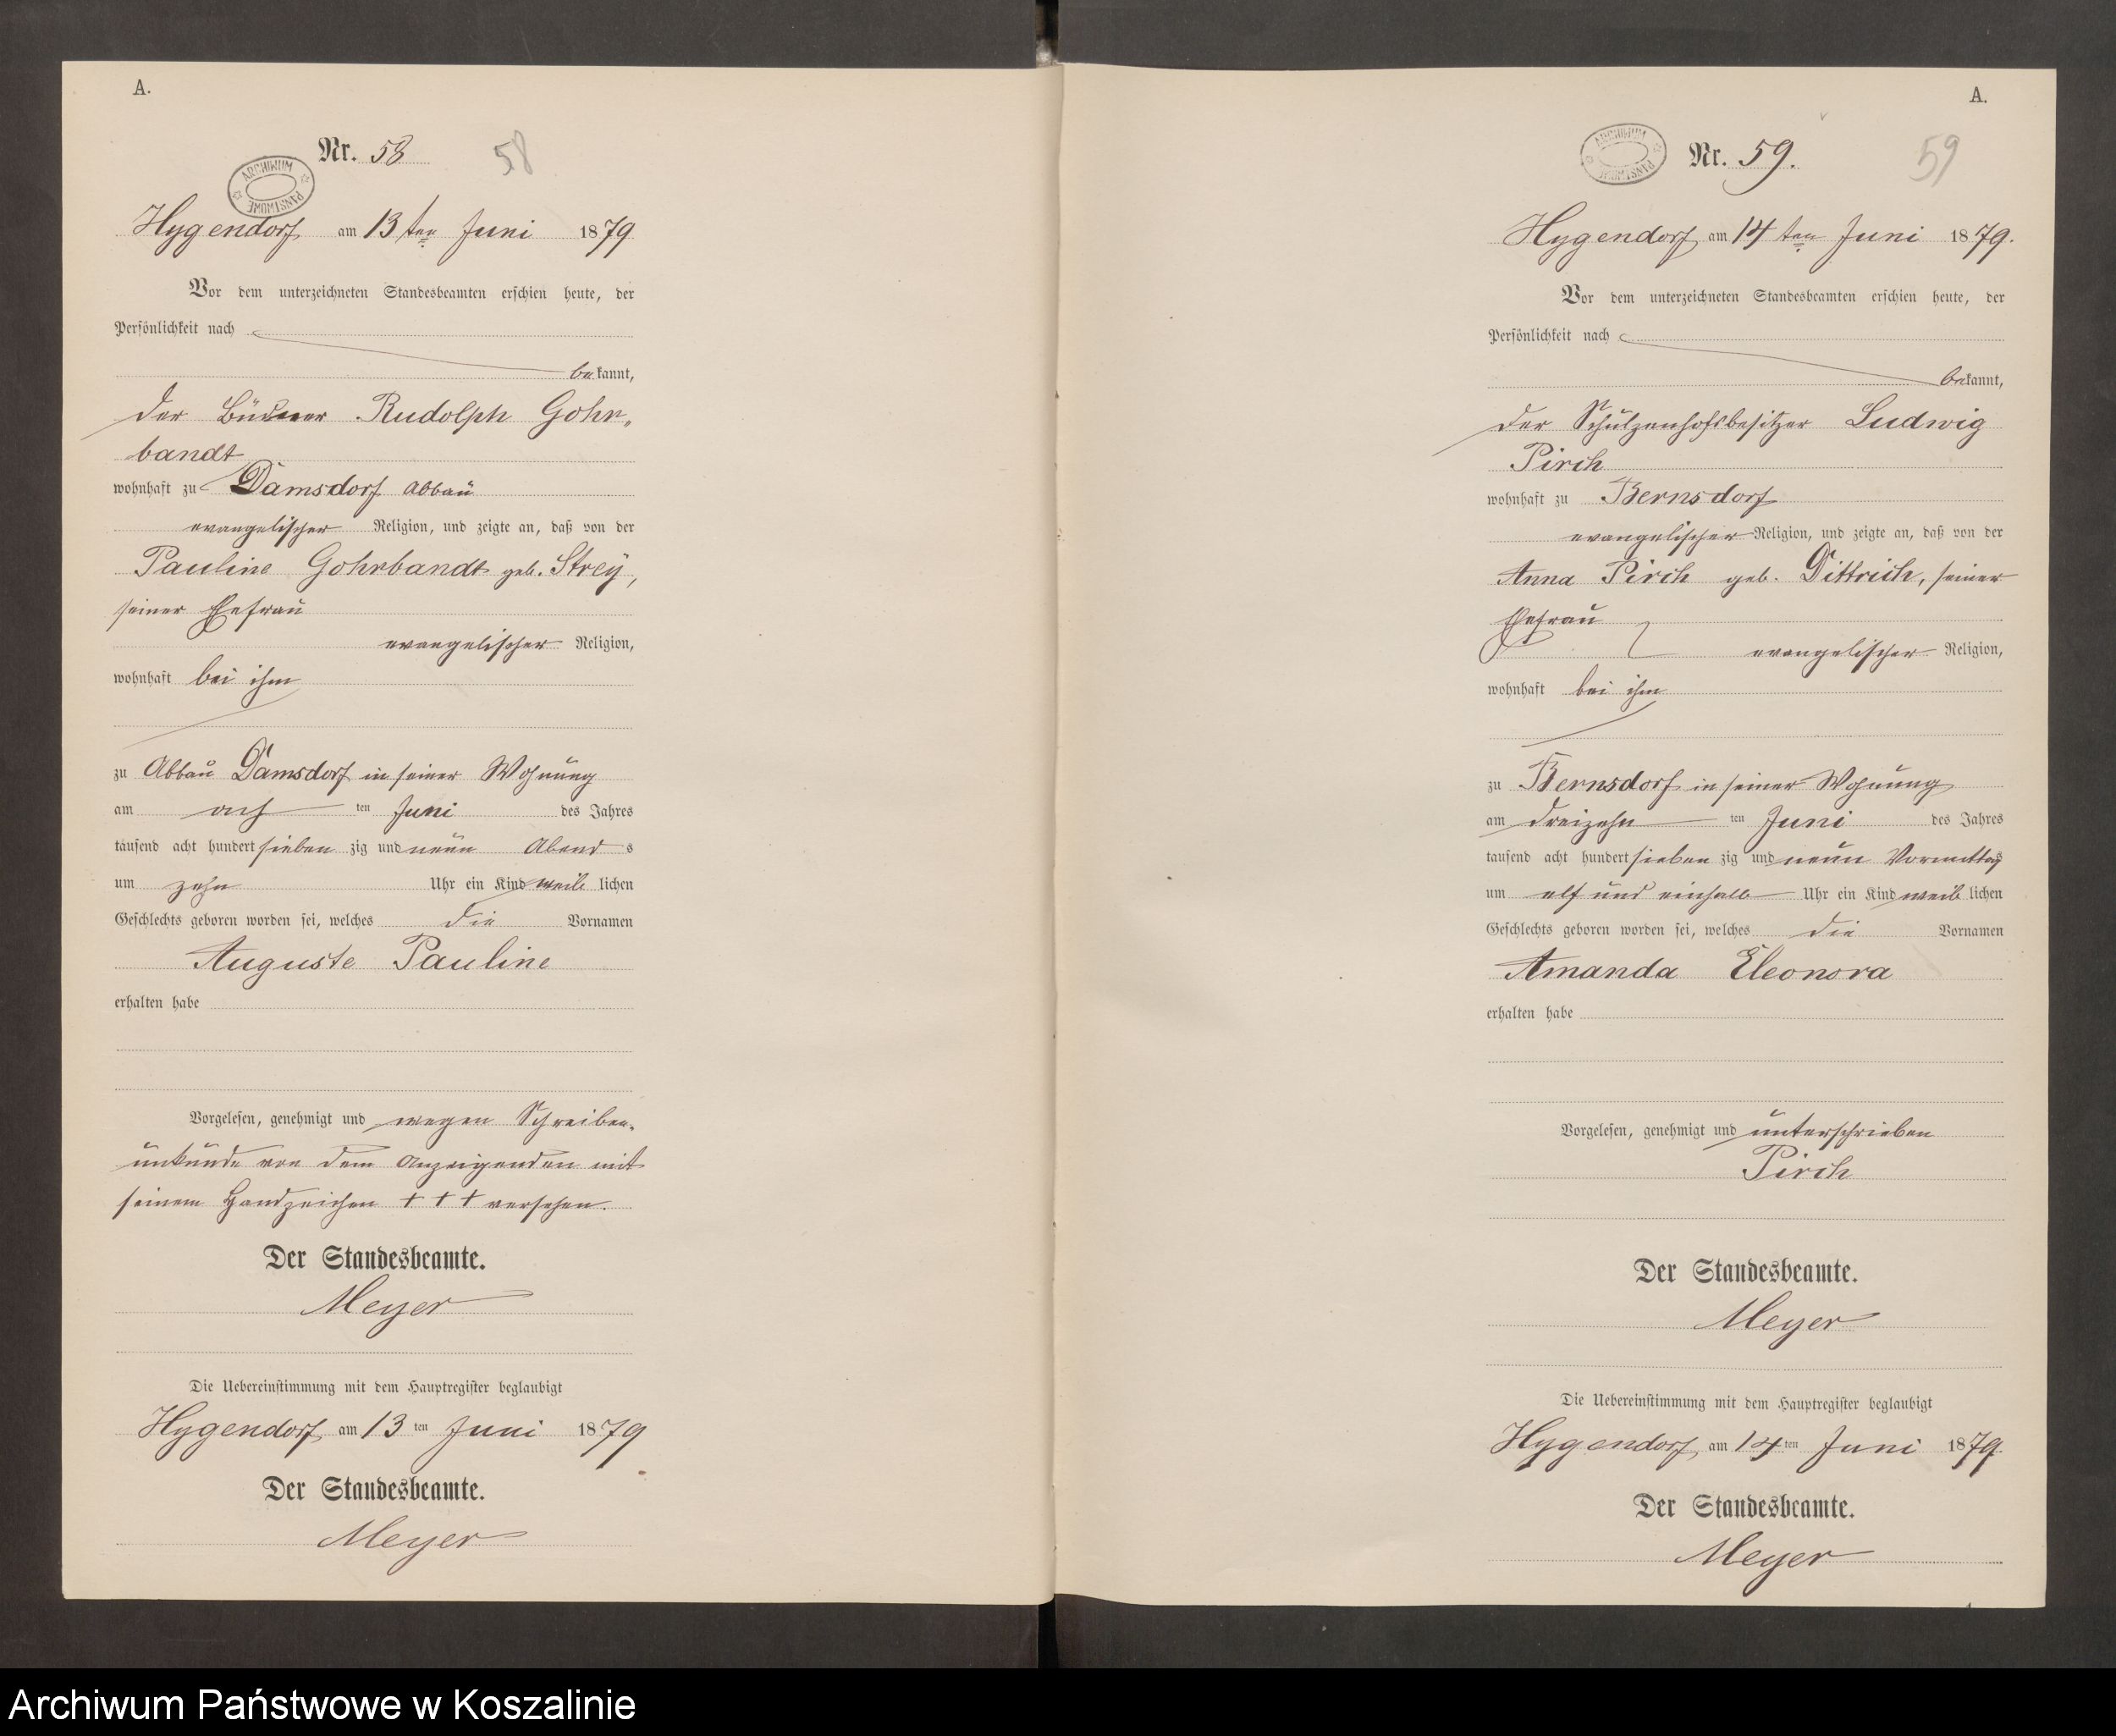 A.
Nr. 58
58
ARCHIWUM PAŃSTWOWE
Hygendorf am 13ten Juni 1879
Vor dem unterzeichneten Standesbeamten erschien heute, der
Persönlichkeit nach
bekannt,
der Büdner Rudolph Gohr-
bandt
wohnhaft zu Damsdorf Abbau
evangelischer Religion, und zeigte an, daß von der
Pauline Gohrbandt geb. Strey,
seiner Ehefrau
evangelischer Religion,
wohnhaft bei ihm
zu Abbau Damsdorf in seiner Wohnung
am ach ten Juni des Jahres
tausend acht hundert sieben zig und neun Abend s
um zehn Uhr ein Kind weib lichen
Geschlechts geboren worden sei, welches die Vornamen
Auguste Pauline
erhalten habe
Vorgelesen, genehmigt und wegen Schreibens-
unkunde von dem Anzeigenden mit
seinem Handzeichen + + + versehen.
Der Standesbeamte.
Meyer
Die Uebereinstimmung mit dem Hauptregister beglaubigt
Hygendorf am 13 ten Juni 1879
Der Standesbeamte.
Meyer
A.
Nr. 59.
59
ARCHIWUM PAŃSTWOWE
Hygendorf am 14ten Juni 1879.
Vor dem unterzeichneten Standesbeamten erschien heute, der
Persönlichkeit nach
bekannt,
der Schulzenhofsbesitzer Ludwig
Pirch
wohnhaft zu Bernsdorf
evangelischer Religion, und zeigte an, daß von der
Anna Pirch geb. Dittrich, seiner
Ehefrau
evangelischer Religion,
wohnhaft bei ihm
zu Bernsdorf in seiner Wohnung
am dreizehn ten Juni des Jahres
tausend acht hundert sieben zig und neun Vormittags
um elf und einhalb Uhr ein Kind weib lichen
Geschlechts geboren worden sei, welches die Vornamen
Amanda Eleonora
erhalten habe
Vorgelesen, genehmigt und unterschrieben
Pirch
Der Standesbeamte.
Meyer
Die Uebereinstimmung mit dem Hauptregister beglaubigt
Hygendorf am 14 ten Juni 1879.
Der Standesbeamte.
Meyer
Archiwum Państwowe w Koszalinie